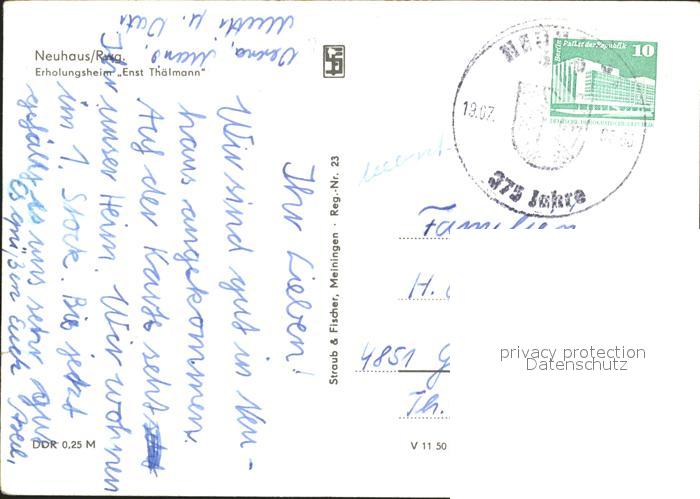 Neuhaus/Rwg.
Erholungsheim „Enst Thälmann"
Ihr Lieben!
Wir sind gut in Neu-
haus angekommen.
Auf der Karte seht
Ihr unser Heim. Wir wohnen
im 1. Stock. Bis jetzt
gefällt es uns sehr gut
Es grüßen Euch
Mutti u. Vati
DDR 0,25 M
Straub & Fischer, Meiningen · Reg.-Nr. 23
V 11 50
Berlin Palast der Republik
10
19.07.
375 Jahre
H.
4851
Th.
privacy protection
Datenschutz